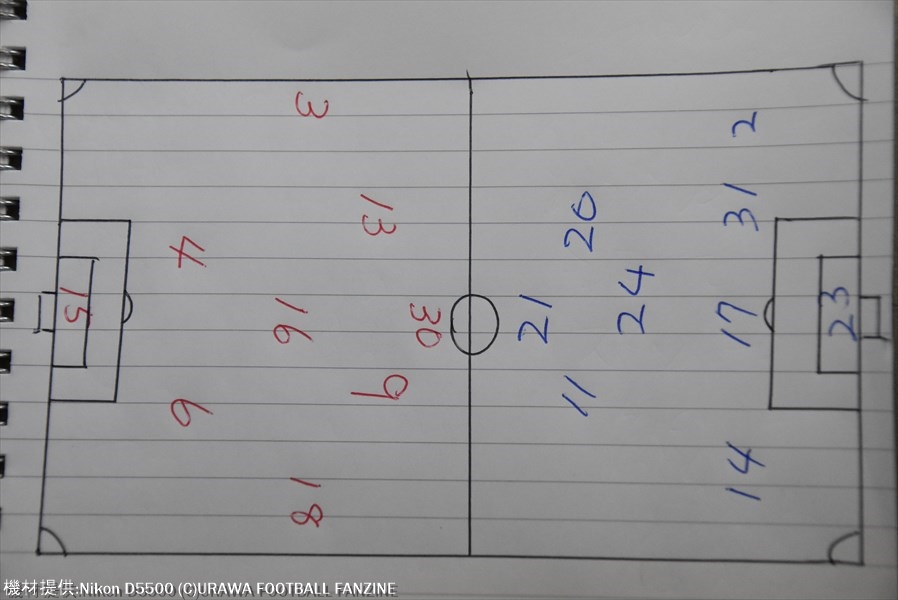 3
13
4
15
16
30
9
6
18
2
31
20
24
21
17
23
11
14
機材提供:Nikon D5500 (C)URAWA FOOTBALL FANZINE